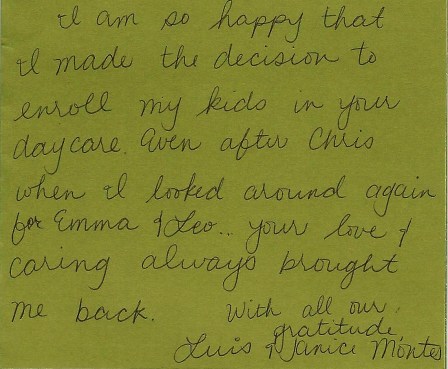 I am so happy that
I made the decision to
enroll my kids in your
daycare. Even after Chris
when I looked around again
for Emma & Leo... your love &
caring always brought
me back. With all our
gratitude,
Luis & Janice Montes